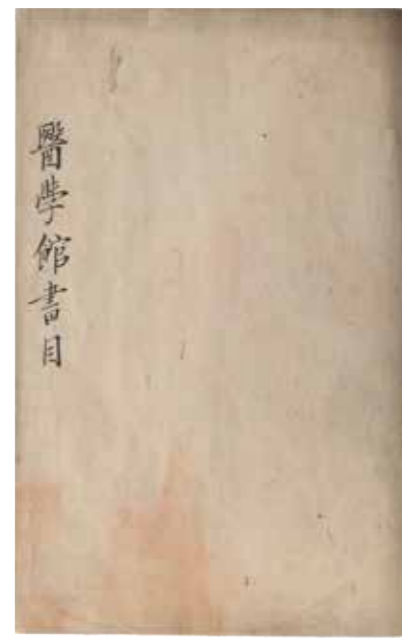 醫學館書目